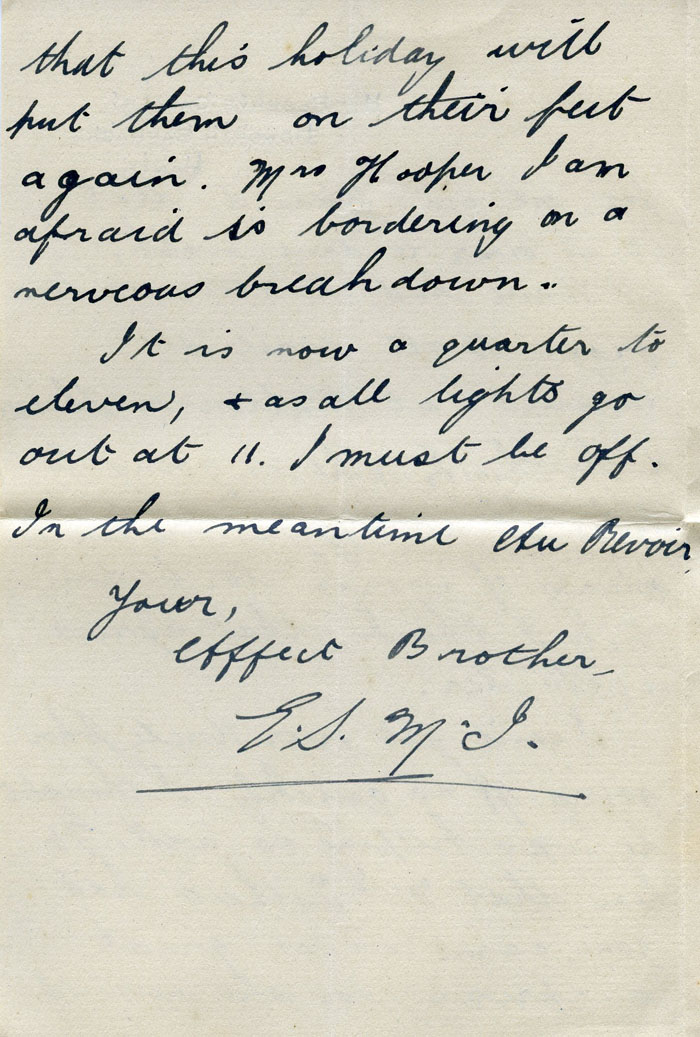 that this holiday will
put them on their feet
again. Mrs Hooper I am
afraid is bordering on a
nerveous breakdown..
It is now a quarter to
eleven, & as all lights go
out at 11. I must be off.
In the meantime Au Revoir,
Your,
Affect Brother,
E.S. McI.